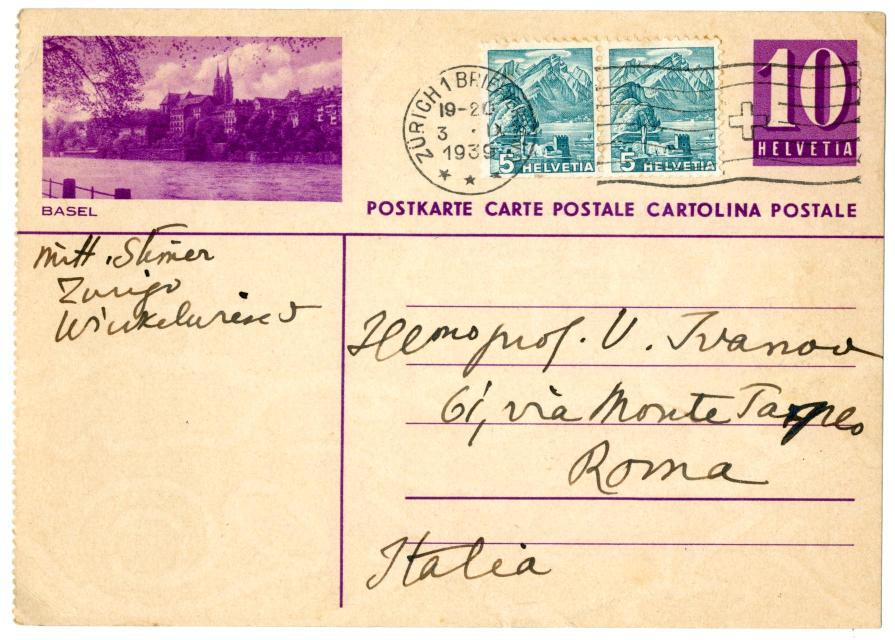 BASEL
ZÜRICH 1 BRIEF
19-20
3
1939
5 HELVETIA
5 HELVETIA
10
HELVETIA
POSTKARTE CARTE POSTALE CARTOLINA POSTALE
mitt. Steiner
Zurigo
Illmo prof. V. Ivanov
61, via Monte Tarpeo
Roma
Italia